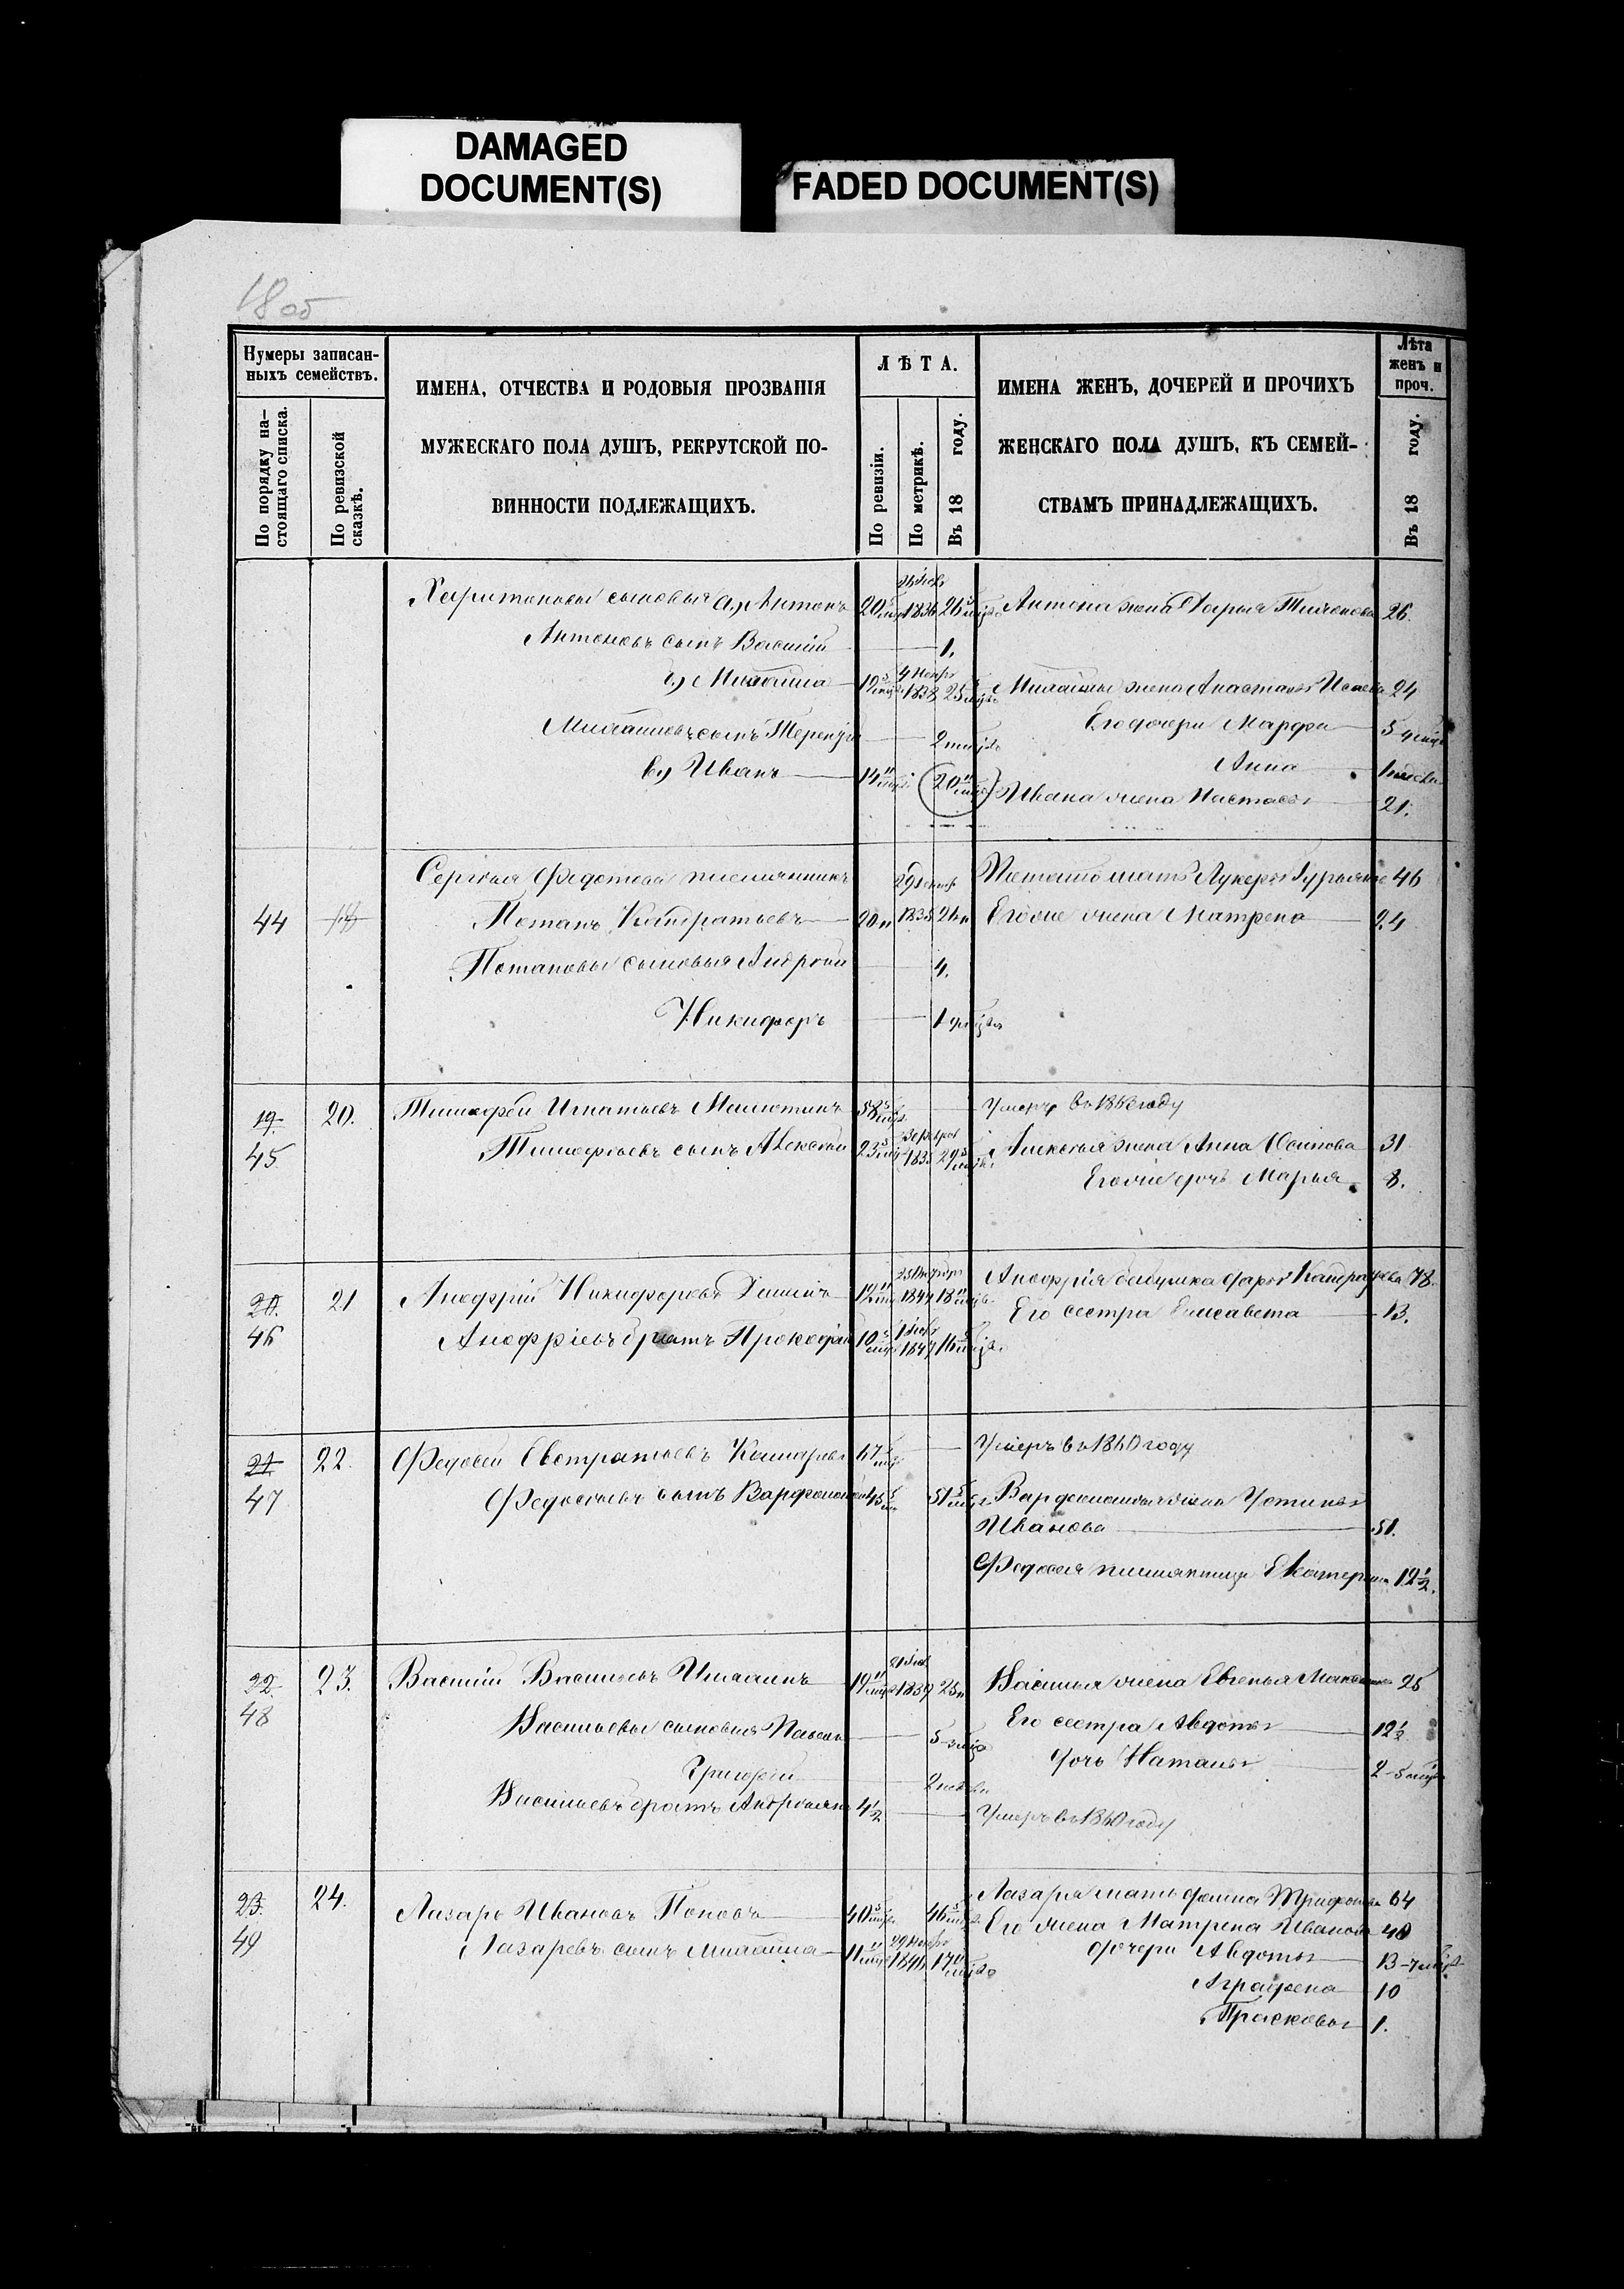 DAMAGED
DOCUMENT(S)
FADED DOCUMENT(S)
18 об
Нумеры записан-
ныхъ семействъ.
По порядку на-
стоящаго списка.
По ревизской
сказкѣ.
ИМЕНА, ОТЧЕСТВА И РОДОВЫЯ ПРОЗВАНІЯ
МУЖЕСКАГО ПОЛА ДУШЪ, РЕКРУТСКОЙ ПО-
ВИННОСТИ ПОДЛЕЖАЩИХЪ.
ЛѢТА.
По ревизіи.
По метрикѣ.
Въ 18 году.
ИМЕНА ЖЕНЪ, ДОЧЕРЕЙ И ПРОЧИХЪ
ЖЕНСКАГО ПОЛА ДУШЪ, КЪ СЕМЕЙ-
СТВАМЪ ПРИНАДЛЕЖАЩИХЪ.
Лѣта
женъ и
проч.
Въ 18 году.
Харитоновы сыновья а) Антонъ 20 1836 26 Антона жена Дарья 26.
Антоновъ сынъ Василій 1.
Михайла 19 4 Ноябр 1838 25 Михайлы жена Анастасья Исаева 24
Михайловъ сынъ Терентій 2 Его дочери Марфа 5
в) Иванъ 14 20 Анна 1
Ивана жена Настасья 21.
Сергѣя Федотова племянникъ 29 Потапа мать Лукерья 46
44 Потапъ Кондратьевъ 20 1838 Его же жена Матрена 24
Потаповы сыновья Андрей 4.
Никифоръ 1
19. 20. Тимофей Игнатьевъ 58 Умеръ въ 1863 году
45. Тимофеевъ сынъ Алексѣй 23 1835 29 Алексѣя жена Анна Осипова 31
Его же дочь Марья 8.
20. 21 Анофрій Никифоровъ 12 1844 18 Анофрія бабушка Дарья Кондратьева 78.
46 Анофріевъ братъ Прокофій 10 1847 16 Его сестра Елисавета 13.
21. 22. Федосей Евстратьевъ 67 Умеръ въ 1860 году
47 Федосѣевъ сынъ Варфоломей 45 51 Варфоломея жена Устинья
Иванова 51.
Федосея племянница Екатерина 12½.
22. 23. Василій Васильевъ 19 1839 25 Василья жена Евгенья 25
48 Васильевы сыновья 5 Его сестра Авдотья 12½
Григорій 2 дочь Наталья 2
Васильевъ братъ Андреянъ 4½ Умеръ въ 1860 году
23. 24. Лазарь Ивановъ Поповъ 40 46 Лазаря мать 64
49 Лазаревъ сынъ Михайла 11 29 Ноябр 1846 17 Его жена Матрена Иванова 48
дочери Авдотья 13
Аграфена 10
Прасковья 1.